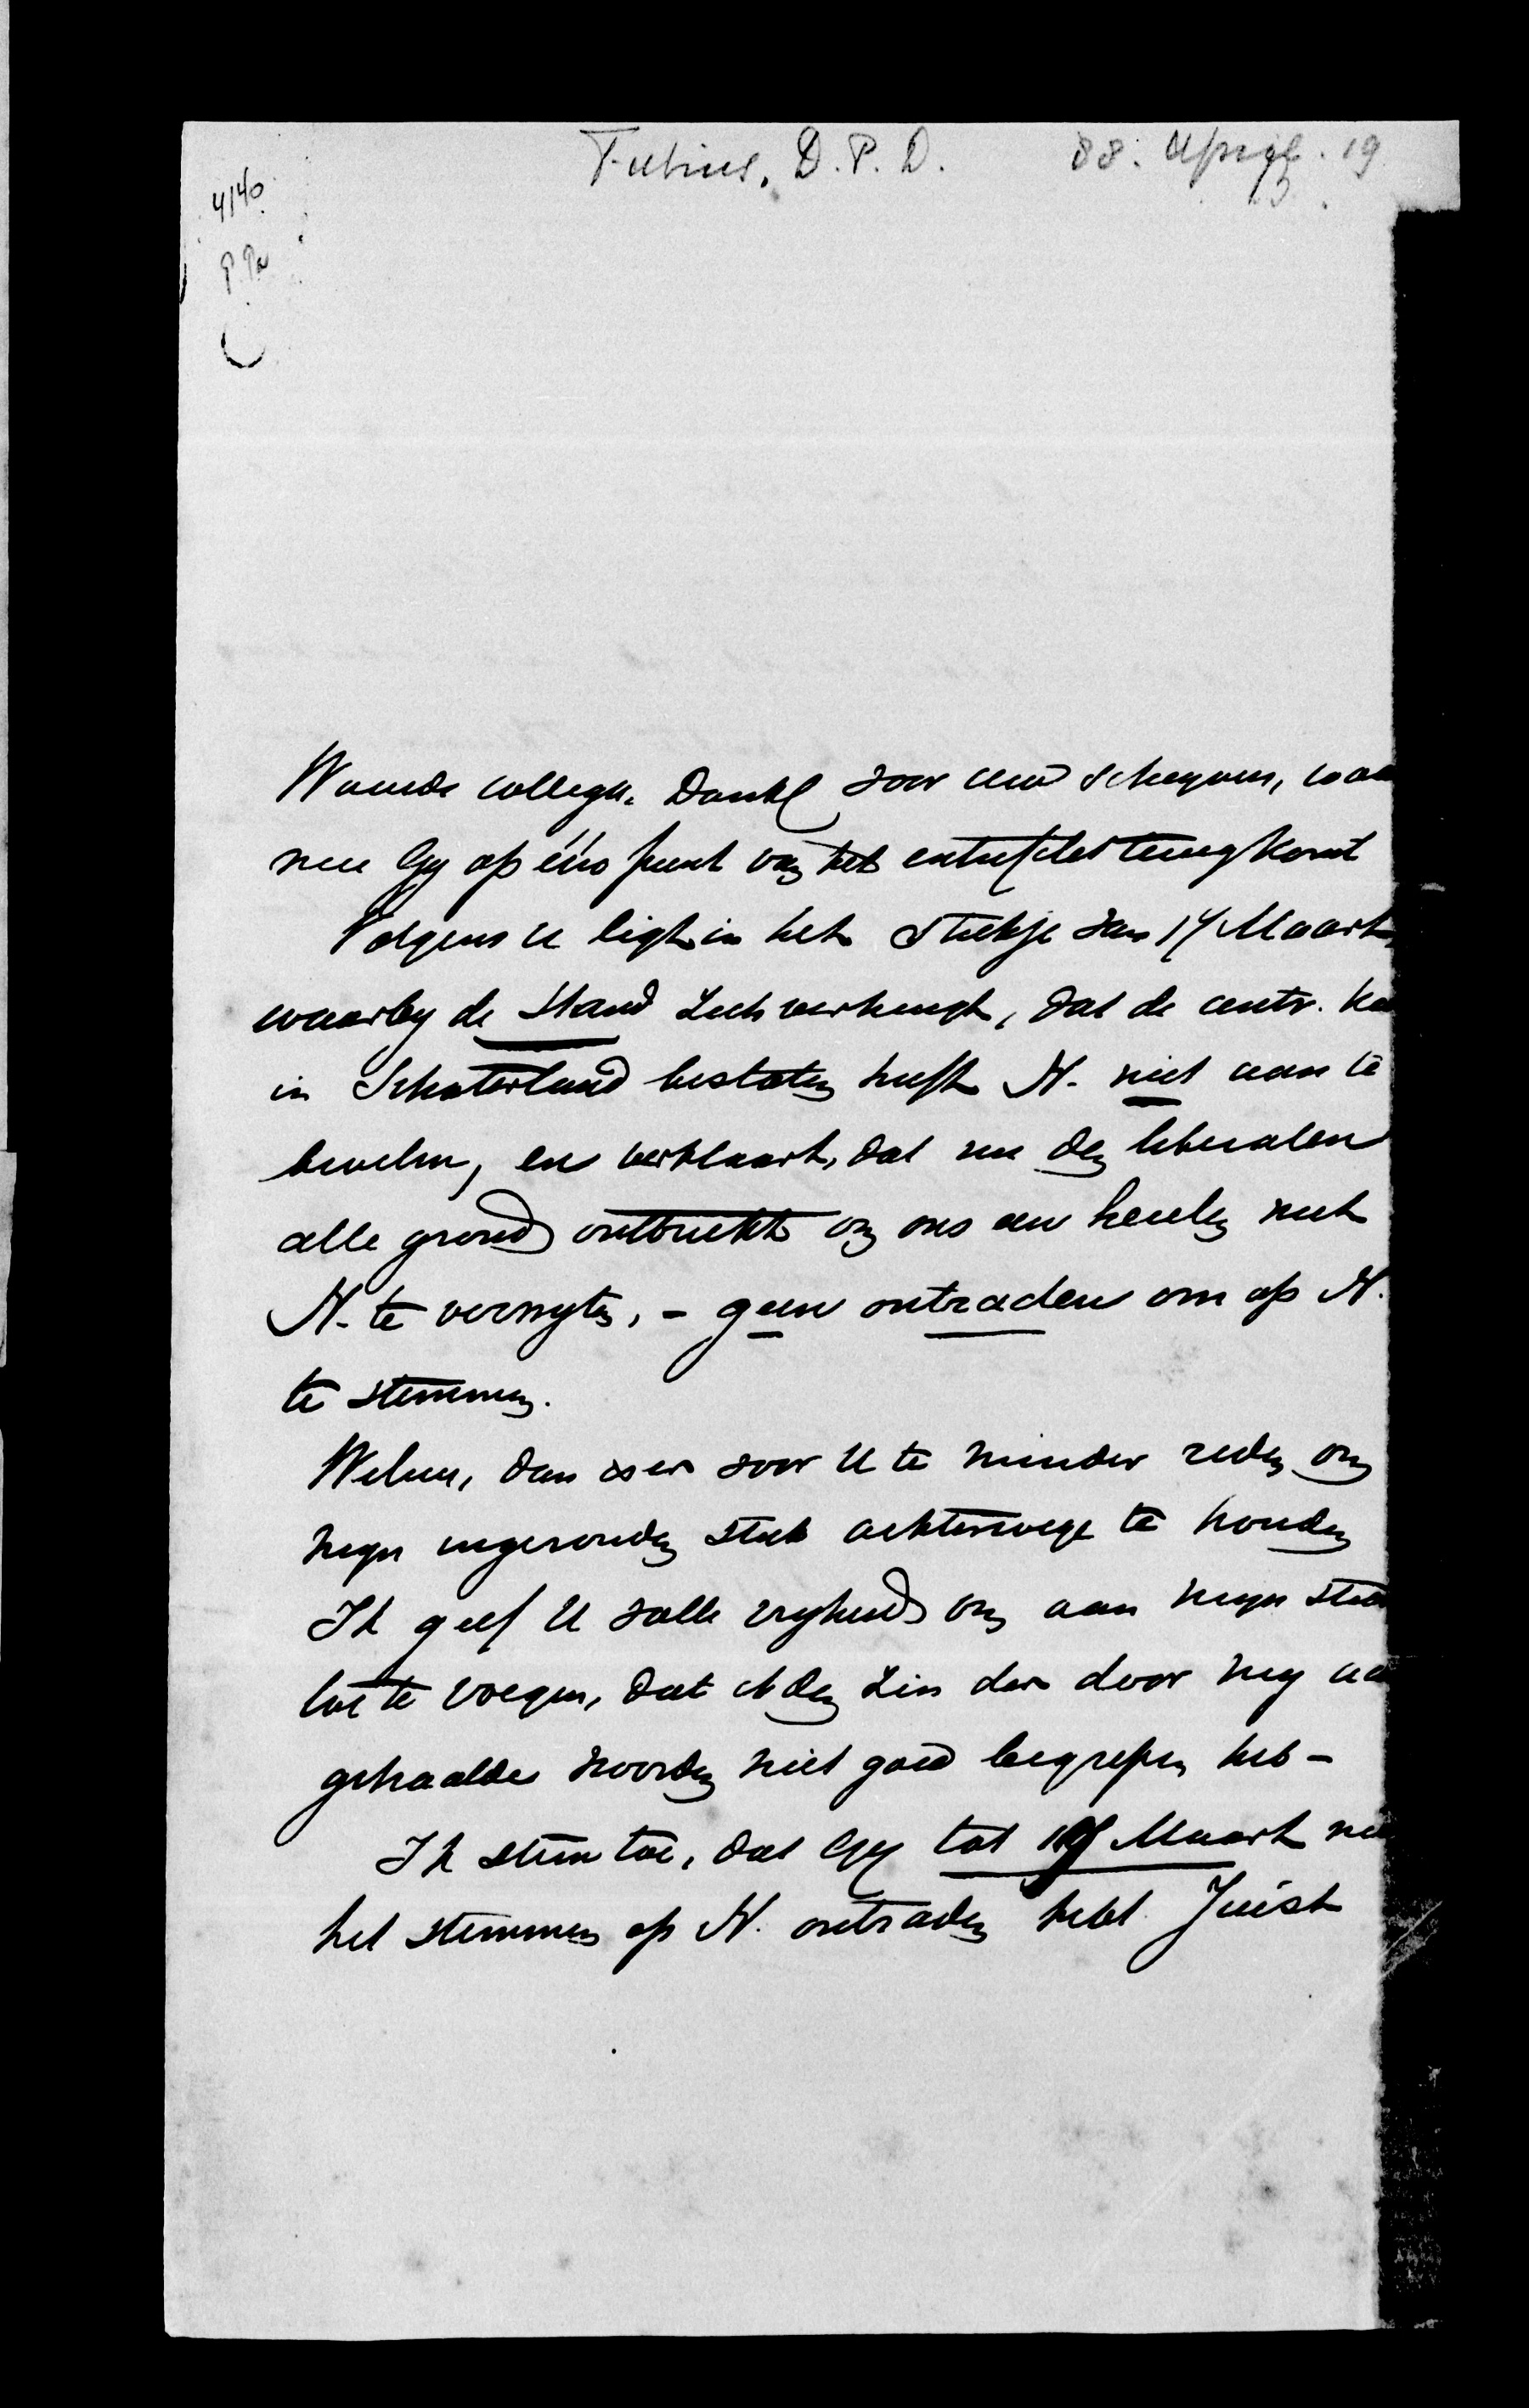 Fabius, D.P.D. 88. April. 19
4140
Waarde collega. Dank voor uw schrijven, waar
nu Gy op één punt van het entrefilet terugkomt
Volgens U ligt in het stukje van 17 Maart,
waarby de Stand. zich verheugt, dat de centr. ka
in Schoterland besloten heeft N. niet aan te
bevelen, en verklaart, dat nu den liberalen
alle grond ontbreekt om ons een heulen met
N. te verwyten, – geen ontraden om op N.
te stemmen.
Welnu, dan is er voor U te minder reden om
mijn ingezonden stuk achterwege te houden
Ik geef U volle vryheid om aan mijn stuk
toe te voegen, dat ik den zin der door my aan
gehaalde woorden niet goed begrepen heb –
Ik stem toe, dat Gy tot 17 Maart niet
het stemmen op N. ontraden hebt. Juist